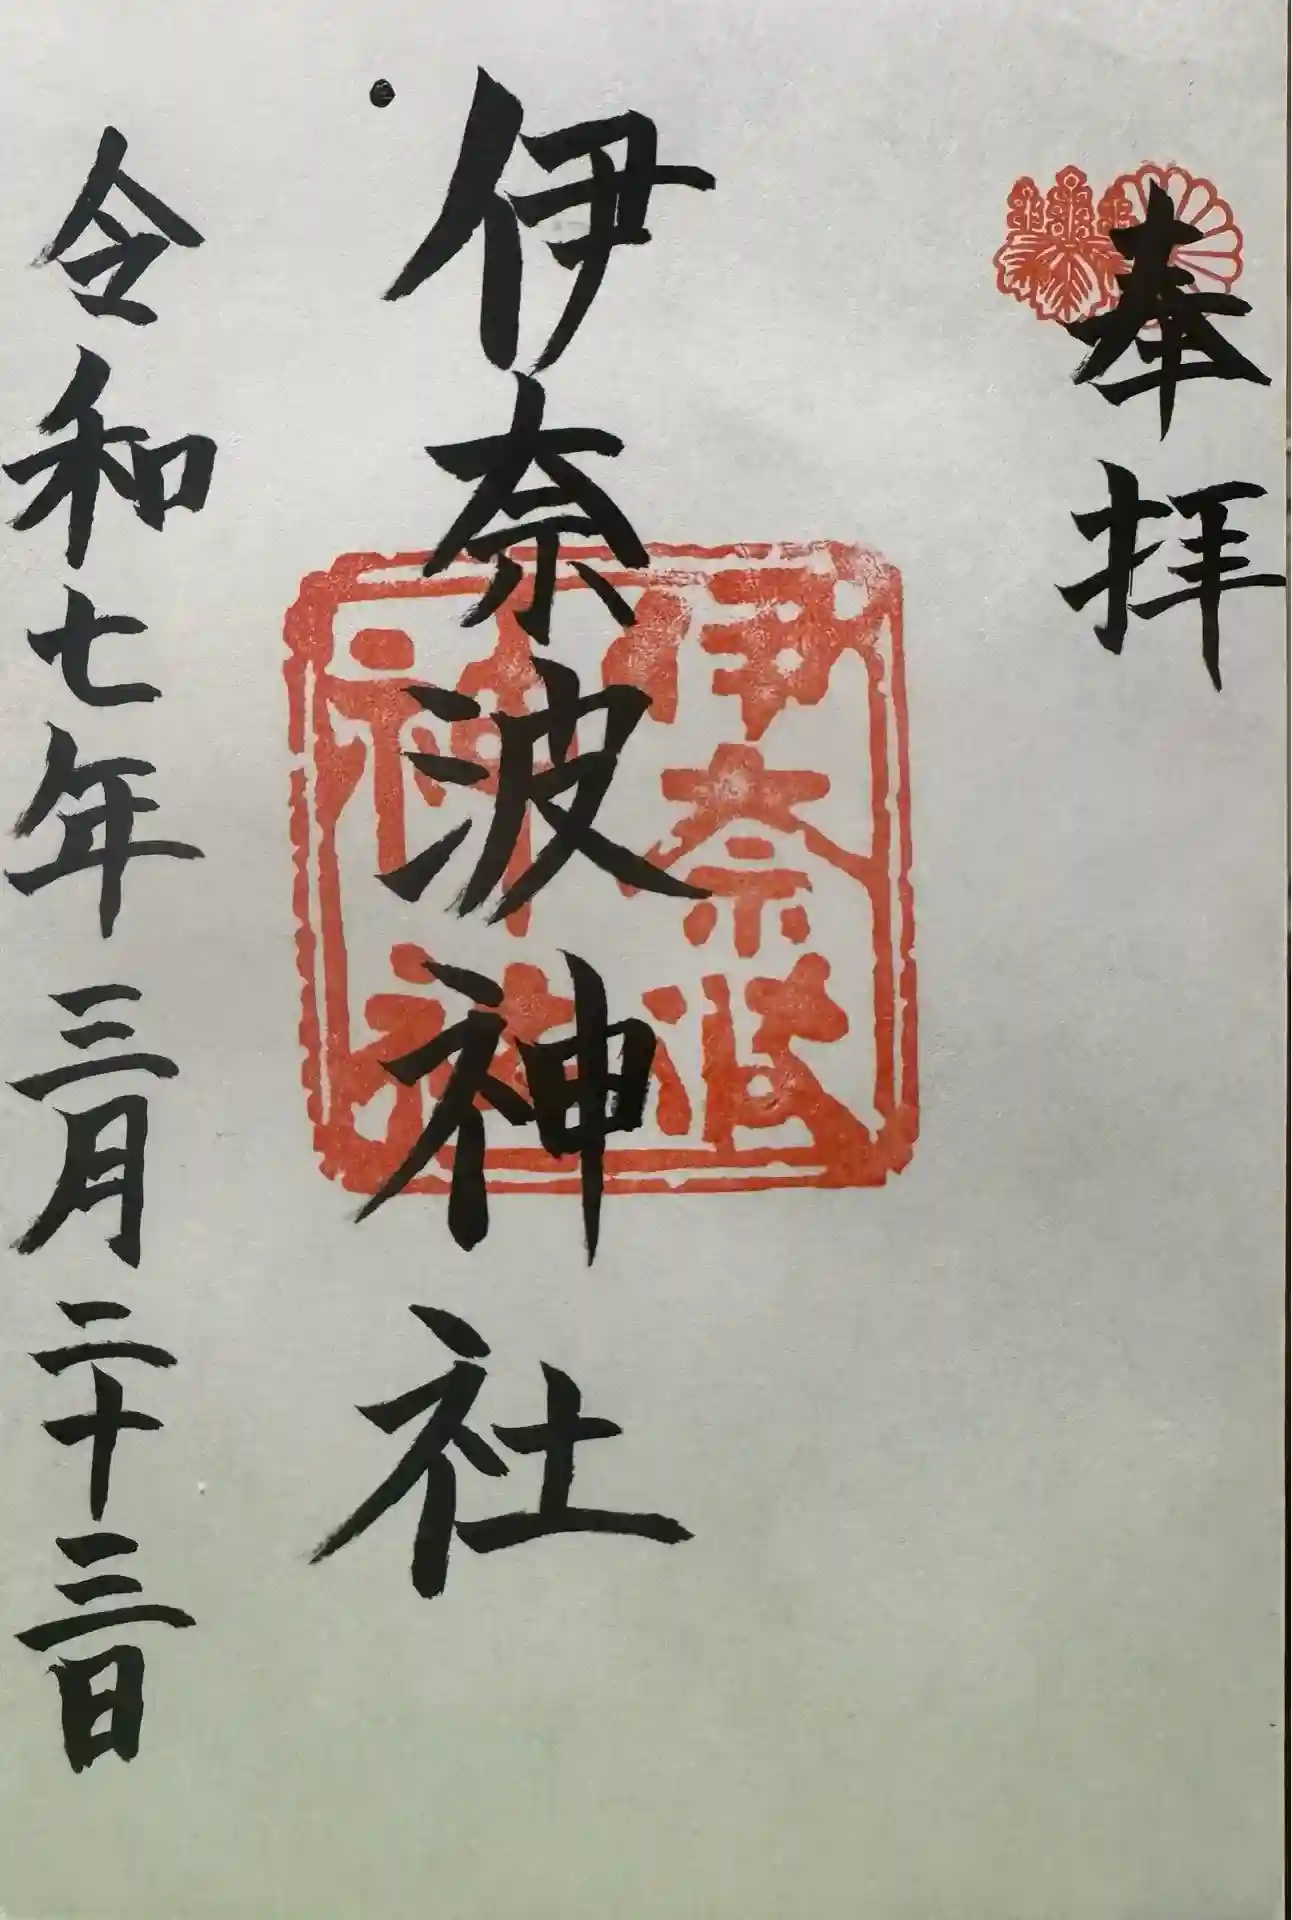 奉拝
伊奈波神社
伊奈波
神社
令和七年三月二十三日